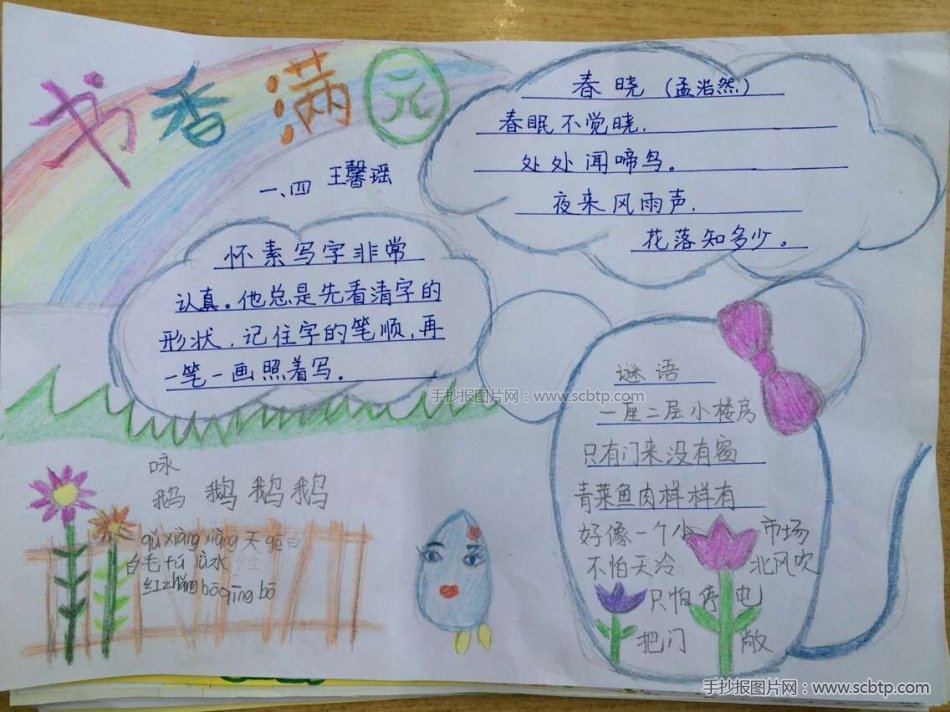 书香满元
一、四 王馨瑶
春晓（孟浩然）
春眠不觉晓.
处处闻啼鸟。
夜来风雨声.
花落知多少。
怀素写字非常
认真。他总是先看清字的
形状，记住字的笔顺，再
一笔一画照着写.
手抄报图片网：www.scbtp.com
谜语
一座二层小楼房
只有门来没有窗
青菜鱼肉样样有
好像一个小 市场
不怕天冷 北风吹
只怕停电
把门 敞
咏
鹅 鹅鹅鹅
qū xiàng xiàng 天 gē
白毛 fú lǜ 水
红 zhǎng bō qīng bō
手抄报图片网：www.scbtp.com